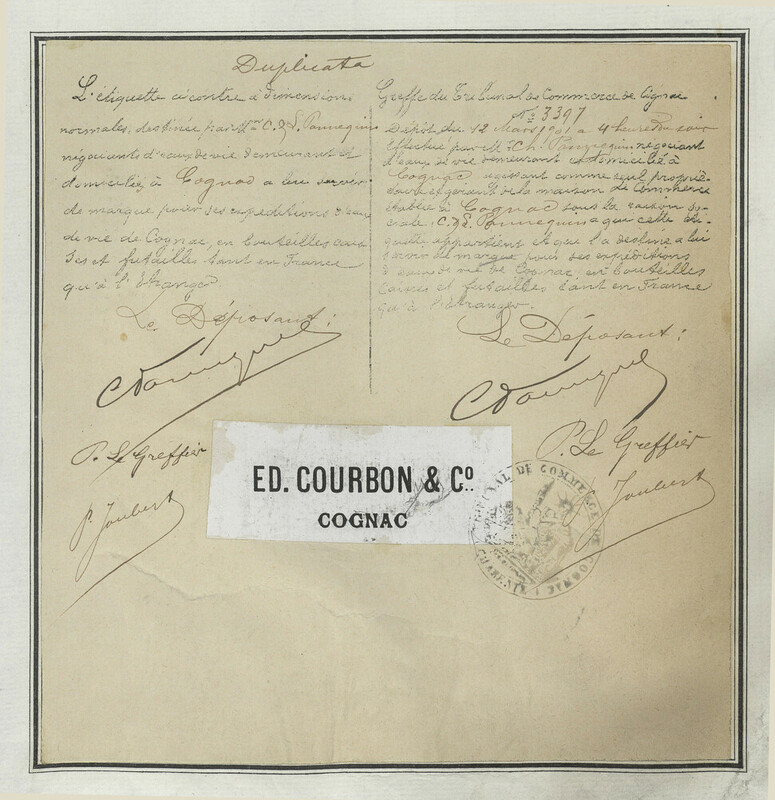 Duplicata
L'étiquette ci contre à dimensions
normales, destinée par Mrs C. & S. Pannequin
négociants d'eaux de vie demeurant et
domiciliés à Cognac a leu servir
de marque pour ses expéditions d'eau
de vie de Cognac, en bouteilles cais
ses et futailles tant en France
qu'à l'Etranger.
Le Déposant:
C Pannequin
P. Le Greffier
P. Joubert
Greffe du Tribunal de Commerce de Cognac
No 3397
Dépôt du 12 Mars 1901 à 4 heures du soir
Effectué par M. Ch. Pannequin négociant
d'eaux de vie demeurant et domicilié à
Cognac agissant comme seul proprié-
taire et gérant de la maison de Commerce
établie à Cognac sous la raison so-
ciale: C. & S. Pannequin a qui cette éti-
quette appartient et que l'a destine a lui
servir de marque pour ses expéditions
d'eaux de vie de Cognac, en bouteilles
caisses et futailles tant en France
qu'à l'étranger.
Le Déposant:
C Pannequin
P. Le Greffier
Joubert
ED. COURBON & Co.
COGNAC
TRIBUNAL DE COMMERCE DE COGNAC
CHARENTE